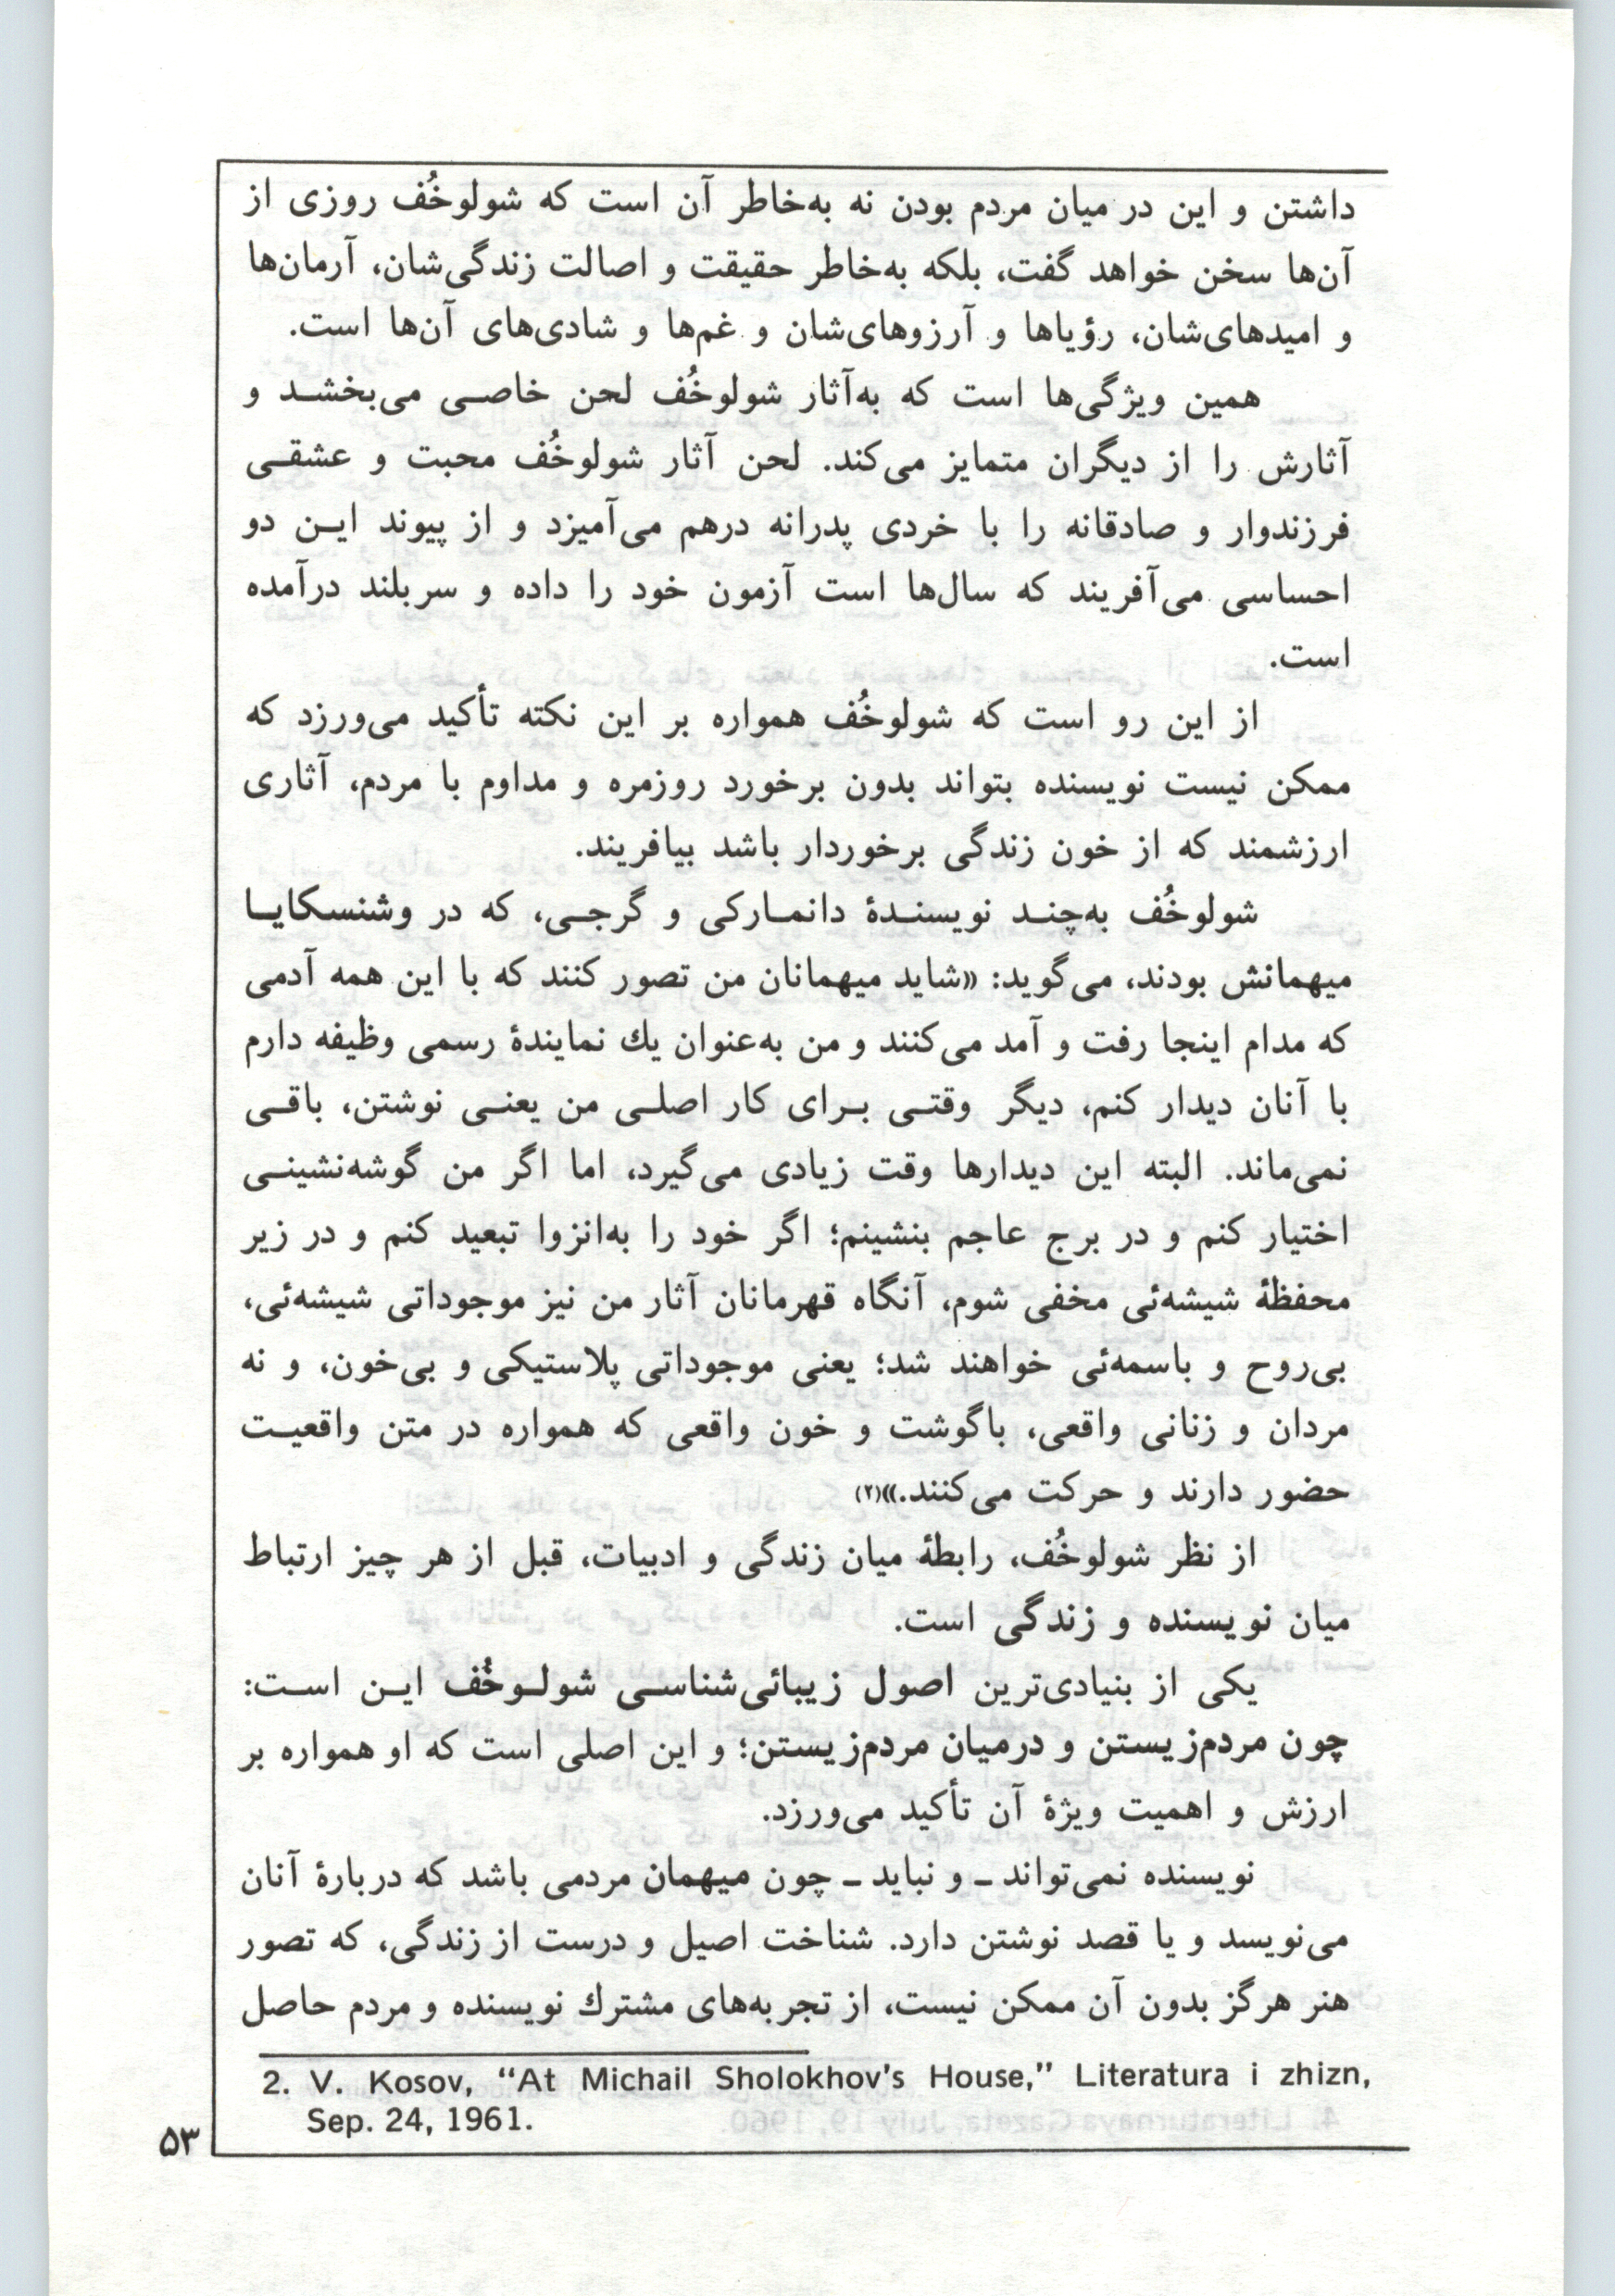 داشتن و این در میان مردم بودن نه به‌خاطر آن است که شولوخُف روزی از
آن‌ها سخن خواهد گفت، بلکه به‌خاطر حقیقت و اصالت زندگی‌شان، آرمان‌ها
و امیدهای‌شان، رؤیاها و آرزوهای‌شان و غم‌ها و شادی‌های آن‌ها است.
همین ویژگی‌ها است که به‌آثار شولوخُف لحن خاصـی می‌بخشـد و
آثارش را از دیگران متمایز می‌کند. لحن آثار شولوخُف محبت و عشقـی
فرزندوار و صادقانه را با خردی پدرانه درهم می‌آمیزد و از پیوند ایـن دو
احساسی می‌آفریند که سال‌ها است آزمون خود را داده و سربلند درآمده
است.
از این رو است که شولوخُف همواره بر این نکته تأکید می‌ورزد که
ممکن نیست نویسنده بتواند بدون برخورد روزمره و مداوم با مردم، آثاری
ارزشمند که از خون زندگی برخوردار باشد بیافریند.
شولوخُف به‌چنـد نویسنـدهٔ دانمـارکی و گرجـی، که در وشنسکایـا
میهمانش بودند، می‌گوید: «شاید میهمانان من تصور کنند که با این همه آدمی
که مدام اینجا رفت و آمد می‌کنند و من به‌عنوان یك نمایندهٔ رسمی وظیفه دارم
با آنان دیدار کنم، دیگر وقتـی بـرای کار اصلـی من یعنـی نوشتن، باقـی
نمی‌ماند. البته این دیدارها وقت زیادی می‌گیرد، اما اگر من گوشه‌نشینـی
اختیار کنم و در برج عاجم بنشینم؛ اگر خود را به‌انزوا تبعید کنم و در زیر
محفظهٔ شیشه‌ئی مخفی شوم، آنگاه قهرمانان آثار من نیز موجوداتی شیشه‌ئی،
بی‌روح و باسمه‌ئی خواهند شد؛ یعنی موجوداتی پلاستیکی و بی‌خون، و نه
مردان و زنانی واقعی، باگوشت و خون واقعی که همواره در متن واقعیـت
حضور دارند و حرکت می‌کنند.»(۲)
از نظر شولوخُف، رابطهٔ میان زندگی و ادبیات، قبل از هر چیز ارتباط
میان نویسنده و زندگی است.
یکی از بنیادی‌ترین اصول زیبائی‌شناسـی شولـوخُف ایـن اسـت:
چون مردم‌زیستن و درمیان مردم‌زیستن؛ و این اصلی است که او همواره بر
ارزش و اهمیت ویژهٔ آن تأکید می‌ورزد.
نویسنده نمی‌تواند ـ و نباید ـ چون میهمان مردمی باشد که دربارهٔ آنان
می‌نویسد و یا قصد نوشتن دارد. شناخت اصیل و درست از زندگی، که تصور
هنر هرگز بدون آن ممکن نیست، از تجربه‌های مشترك نویسنده و مردم حاصل
2. V. Kosov, “At Michail Sholokhov's House,” Literatura i zhizn,
Sep. 24, 1961.
۵۳